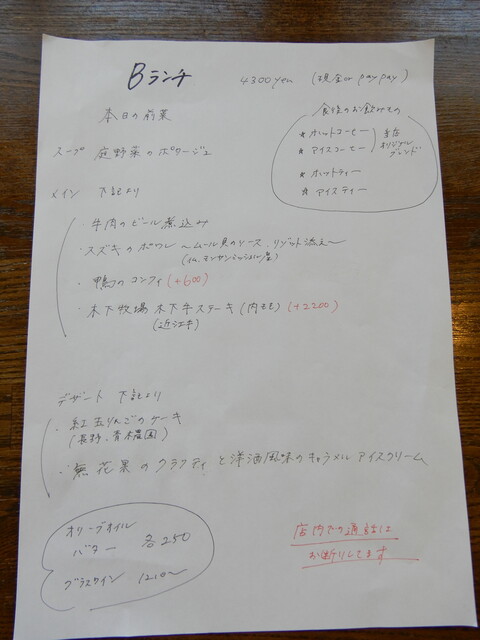 Bランチ 4300yen (現金or paypay)
本日の前菜
スープ 庭野菜のポタージュ
食後のお飲みもの
★ ホットコーヒー
★ アイスコーヒー
当店
オリジナル
ブレンド
★ ホットティー
★ アイスティー
メイン 下記より
・牛肉のビール煮込み
・スズキのポワレ 〜ムール貝のソース、リゾット添え〜
(仏、モンサンミッシェル産)
・鴨のコンフィ (+600)
・木下牧場 木下牛ステーキ (内モモ) (+2200)
(近江牛)
デザート 下記より
・紅玉りんごのケーキ
(長野、青木農園)
・無花果のクラフティと洋酒風味のキャラメルアイスクリーム
オリーブオイル
バター 各250
グラスワイン 1210〜
店内での通話は
お断りしてます